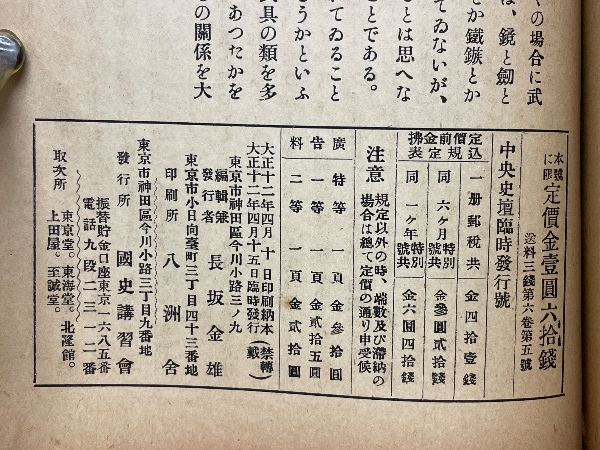 くの場合に武
は、鏡と劍と
とか鐵鏃とか
てゐないが、
とは思へな
ことである。
てゐること
うかといふ
具の類を多
あつたかを
の關係を大
本號に限 定價金壹圓六拾錢
送料三錢 第六卷第五號
中央史壇臨時發行號
定價規定
込前金拂表
一册郵税共 金四拾壹錢
同 六ヶ月特別號共 金參圓貳拾錢
同 一ヶ年特別號共 金六圓四拾錢
注意 規定以外の時、端數及び滯納の
場合は總て定價の通り申受候
廣告料
特等 一頁 金參拾圓
一等 一頁 金貳拾五圓
二等 一頁 金貳拾圓
大正十二年四月十日印刷納本(禁轉
大正十二年四月十五日臨時發行 載)
東京市神田區今川小路三ノ九
編輯兼
發行者 長坂金雄
東京市小日向臺町三丁目四十三番地
印刷所 八洲舍
東京市神田區今川小路三丁目九番地
發行所 國史講習會
振替貯金口座東京一六八五番
電話九段二三一二番
取次所 東京堂。東海堂。北隆館。
上田屋。至誠堂。